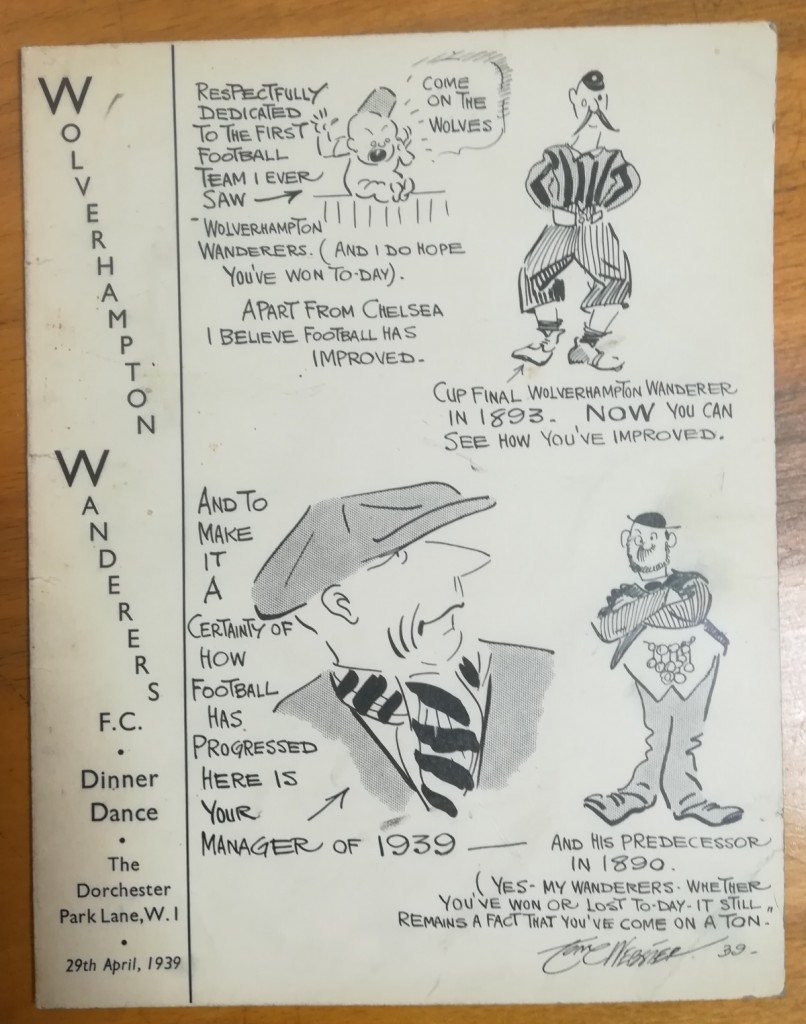 WOLVERHAMPTON
WANDERERS
F.C.
•
Dinner
Dance
•
The
Dorchester
Park Lane, W.1
•
29th April, 1939
RESPECTFULLY
DEDICATED
TO THE FIRST
FOOTBALL
TEAM I EVER
SAW
COME
ON THE
WOLVES
- WOLVERHAMPTON
WANDERERS. (AND I DO HOPE
YOU'VE WON TO-DAY).
APART FROM CHELSEA
I BELIEVE FOOTBALL HAS
IMPROVED -
CUP FINAL WOLVERHAMPTON WANDERER
IN 1893. NOW YOU CAN
SEE HOW YOU'VE IMPROVED.
AND TO
MAKE
IT
A
CERTAINTY OF
HOW
FOOTBALL
HAS
PROGRESSED
HERE IS
YOUR
MANAGER OF 1939 —
AND HIS PREDECESSOR
IN 1890.
(YES - MY WANDERERS - WHETHER
YOU'VE WON OR LOST TO-DAY - IT STILL
REMAINS A FACT THAT YOU'VE COME ON A TON -
Tom Webster 39-